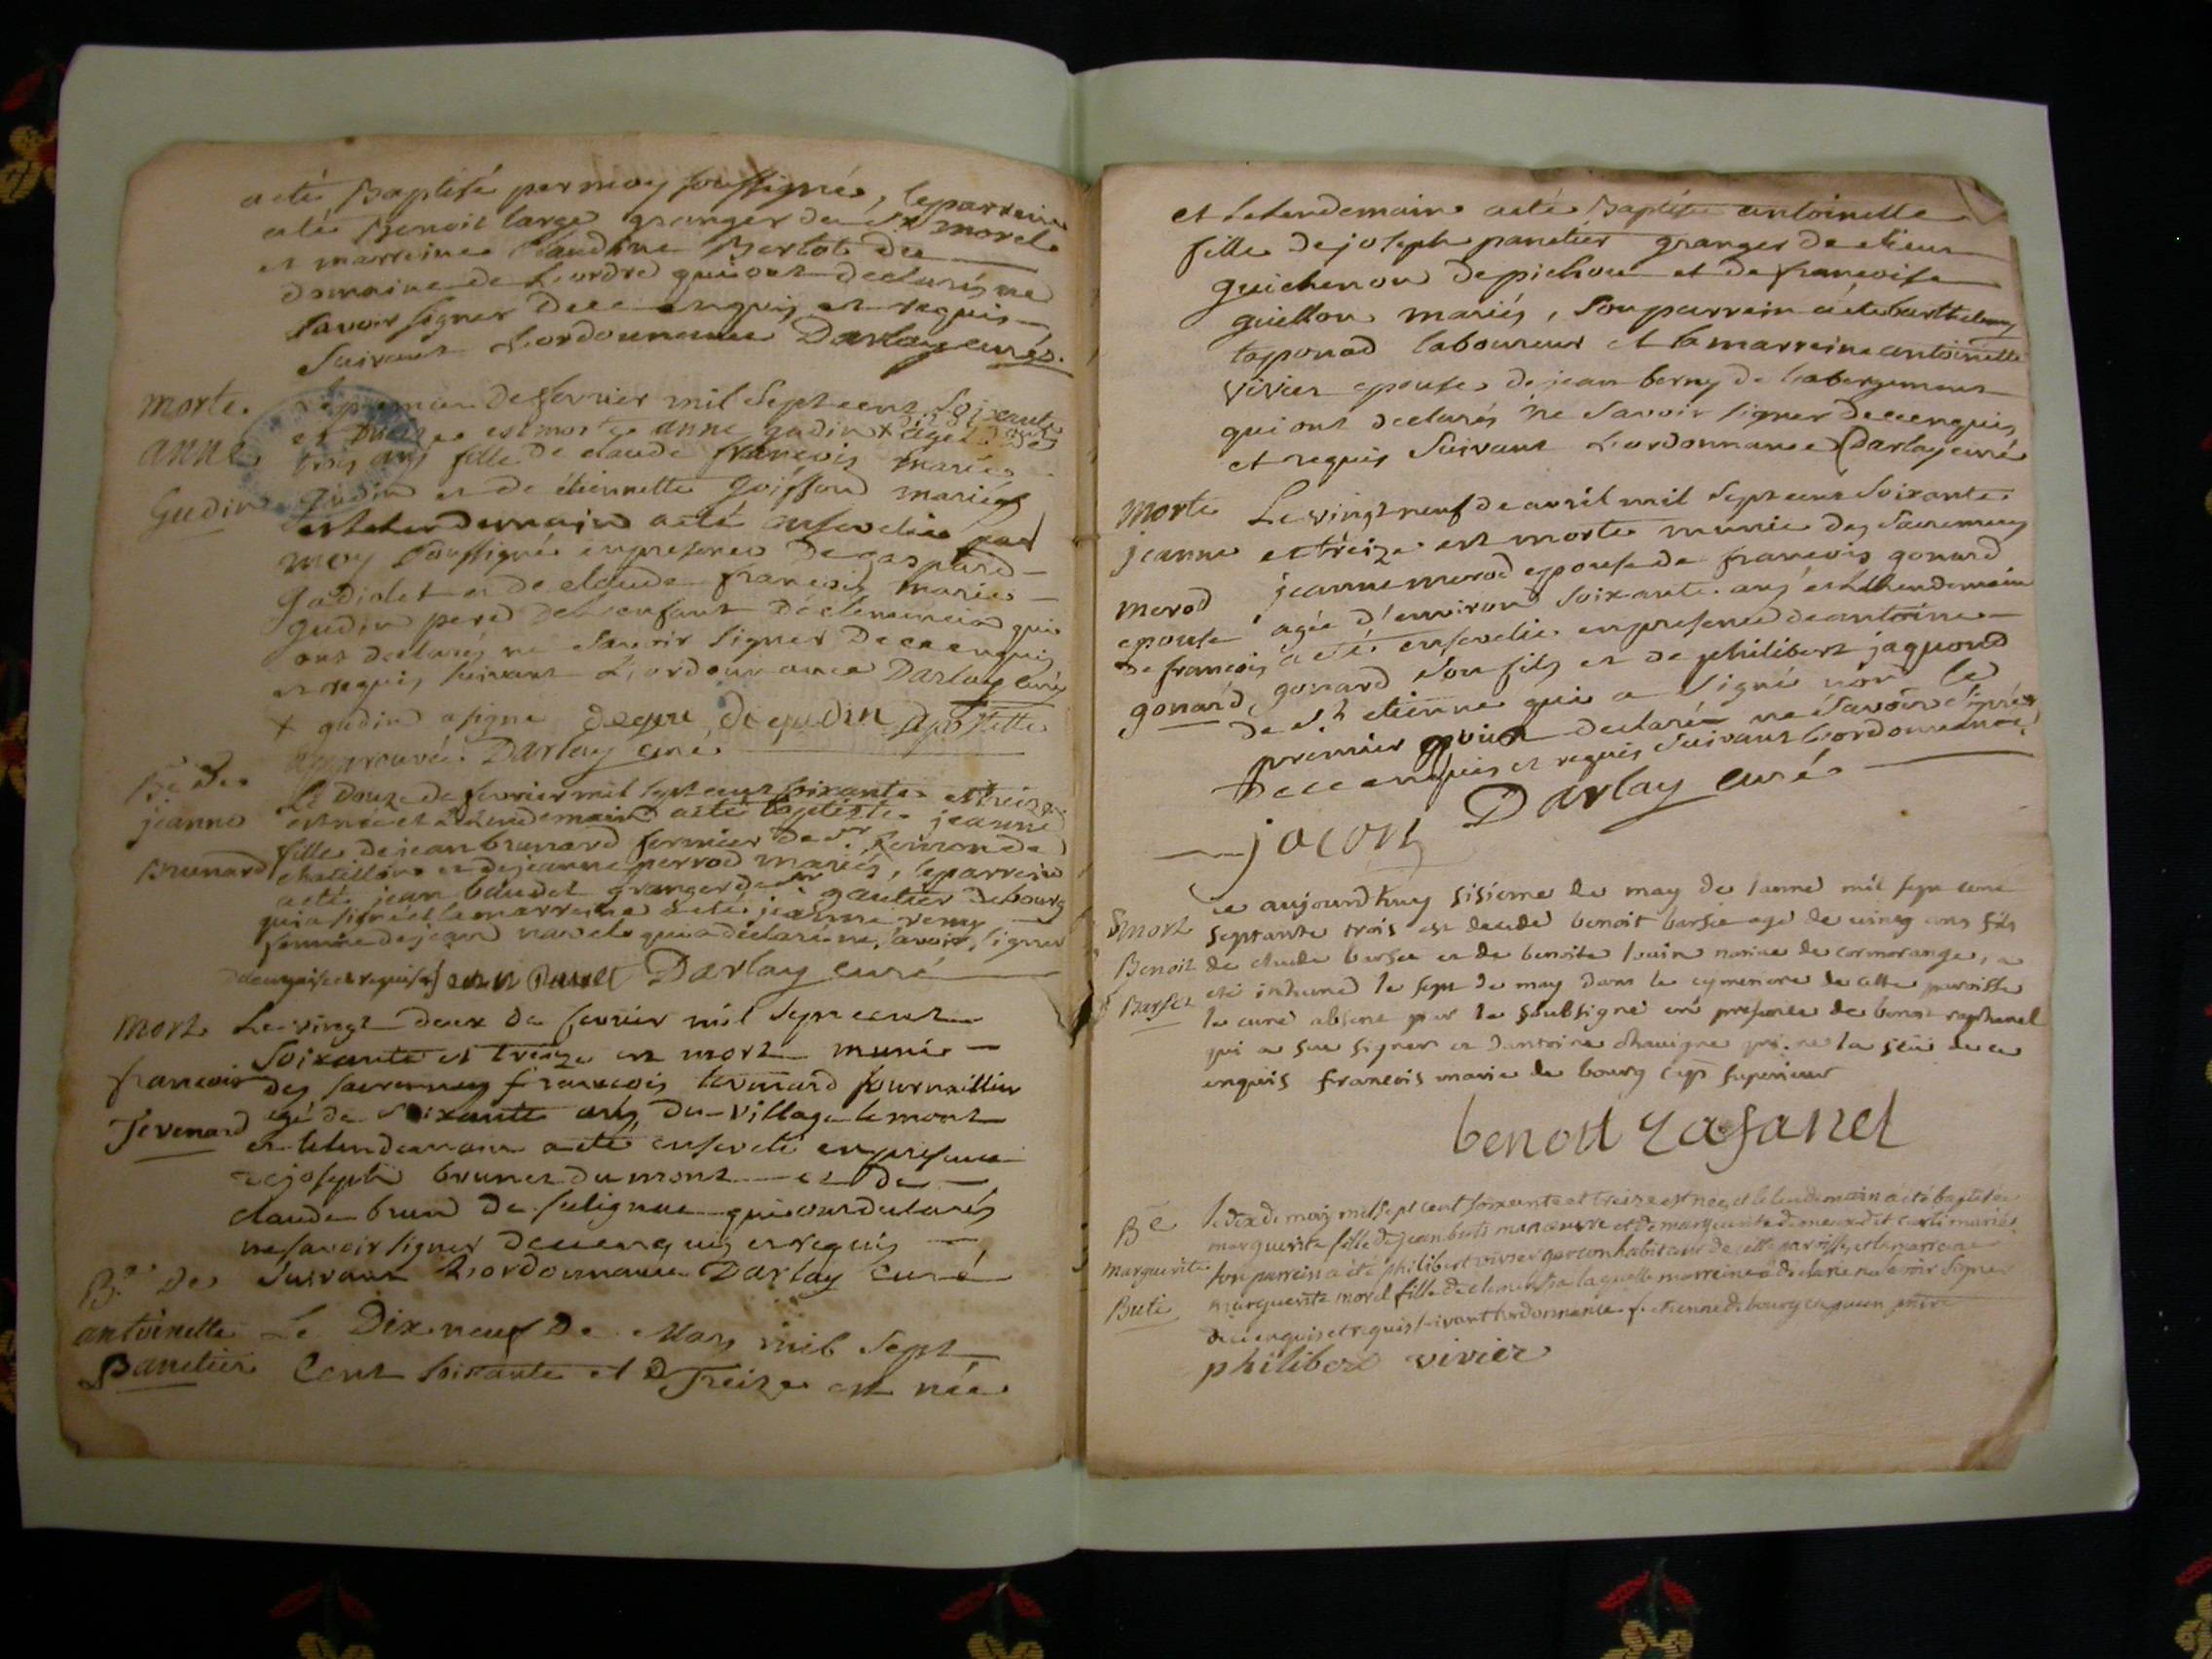 a été Baptisé par moy soussigné, le parrein
a été Benoit large granger de Sr morel
et marreine Claudine Berlot du
domaine de L'ordre qui ont declarés ne
savoir signer de ce enquis et requis
suivant L'ordonnance Darlay curé.
morte Le premier de fevrier mil Sept cent soixante
et treize est morte anne gudin + agée de
anne trois ans fille de claude françois marie
Gudin Gudin et de étiennette Goiffond mariés
et le lendemain a été ensevelie par
moy soussigné en presence de gaspard
gadiolet et de claude françois marie
gudin pere de l'enfant de clemencia qui
ont declarés ne savoir signer de ce enquis
et requis suivant L'ordonnance Darlay curé
+ gudin a signé gudin
approuvé Darlay curé
Bê de Le Douze de fevrier mil sept cent soixante et treize
jeanne est née et le lendemain a été baptisée jeanne
fille de jean brunard fermier de Sr de
Brunard chatillon et de jeanne perrod mariés, le parrein
a été jean baudet granger de Sr gautier de bourg
qui a signé et la marreine a été jeanne remy
femme de jean qui a déclaré ne savoir signer
de ce enquise et requise Darlay curé
mort Le vingt deux de fevrier mil sept cent
soixante et treize est mort muni
françois des sacremens françois tevenard journaillier
Tevenard agé de soixante ans, du village le mont
et le lendemain a été enseveli en presence
de joseph brunet du mont et de
claude brun de selignac qui ont declarés
ne savoir signer de ce enquis et requis
Bê de suivant L'ordonnance Darlay curé
antoinette Le Dix neuf De Mars mil Sept
Panetier Cent soixante et Treize est née
et le lendemain a été Baptisée antoinette
fille de joseph panetier granger de
guichenon de pichou et de francoise
guillon mariés, son parrein a été barthelemy
taponod laboureur et la marreine antoinette
vivier epouse de jean berny de l'abergement
qui ont declarés ne savoir signer de ce enquis
et requis suivant L'ordonnance Darlay curé
morte Le vingt neuf de avril mil sept cent soixante
jeanne et treize est morte munie des sacremens
morod jeanne morod epouse de francois gonard
epouse agée d'environ soixante ans et le lendemain
de francois a été ensevelie en presence de antoine
gonard gonard son fils et de philibert jaquond
de St etienne qui a signé non le
premier qui a declaré ne savoir signer
de ce enquis et requis suivant L'ordonnance
Darlay curé
jacon
ce aujourdhuy sisieme de may de lanné mil sept cent
mort septante trois est decedé benoit barsce agé de cincq ans fils
Benoit de claude barsce et de benoite louin natif de cormorange, a
eté inhumé le sept de may dans le cymetiere de cette paroisse
le curé absent par le soubsigné en presence de benoit raphanel
qui a sue signer et dantoine chavigne qui ne la sçu de ce
enquis francois marie de bourg cap superieur
benoit rafanel
Bê le dix de may mil sept cent soixante et treize est née et le lendemain a été baptisée
marguerite fille de jean buti manoeuvre et de marguerite demeur dit carti mariés
marguerite son parrein a été philibert vivier garcon habitant de cette paroisse, et la marreine
Buti marguerite morel fille de clemencia laquelle marreine a declaré ne savoir signer
de ce enquis et requis suivant lordonnance f. etienne de bourg capucin
philibert vivier